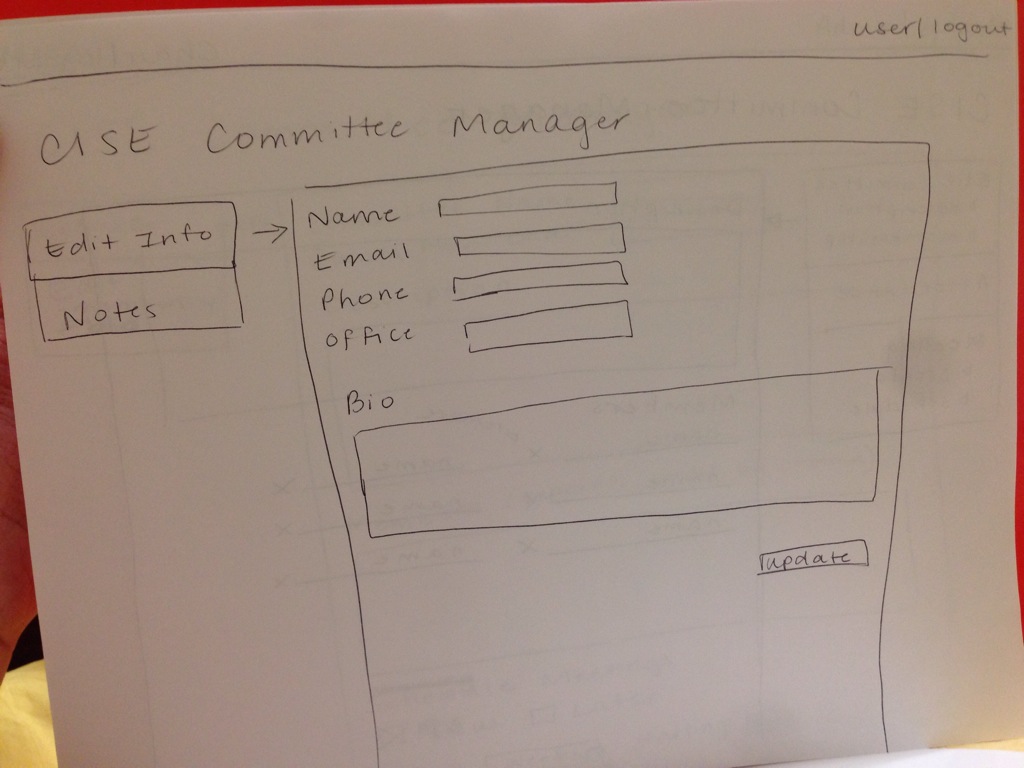 user/logout
CISE Committee Manager
Edit Info
Notes
Name
Email
Phone
office
Bio
update